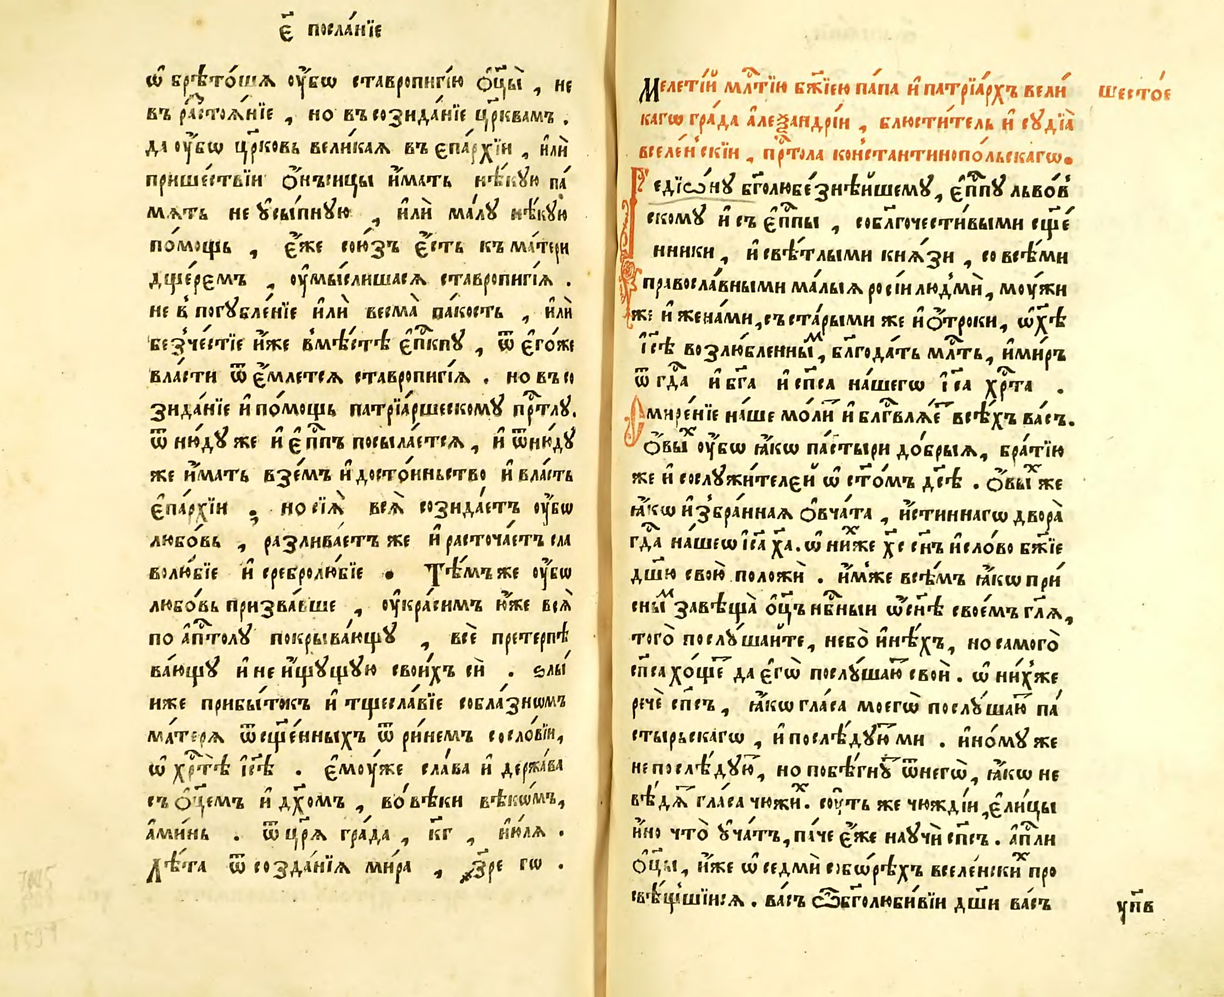 є҃ посла́нїе
ѡ҆брѣто́шѧ ᲂу҆́бѡ ставропигі́ю ѻ҆ц҃ы̀, не
въ расⷭ҇тоѧ́нїе, но въ созида́нїе цр҃квамъ.
да ᲂу҆́бѡ цр҃ковь великаѧ въ є҆па́рхїи, и҆лѝ
прише́ствїи ѻ҆́нъсицы и҆́мать нѣ́кую па́
мѧть не ꙋ҆сы́пную, и҆лѝ ма́лу нѣ́кую
по́мощь, є҆́же сою́зъ є҆́сть къ ма́тери
дще́ремъ, ᲂу҆мы́слишасѧ ставропигі́ѧ.
не в̾ погꙋбле́нїе и҆лѝ весма̀ па́кость, и҆лѝ
безче́стїе и҆́же вмѣ́стѣ є҆пⷭ҇кпꙋ, ѿ є҆гѡ́же
власти ѿ є҆́млетсѧ ставропигі́ѧ. но въ со
зида́нїе и҆ по́мощь патрїа́ршескомꙋ прⷭ҇тлꙋ.
ѿ нюдꙋ же и҆ є҆пⷭ҇пъ посыла́етсѧ, и҆ ѿню́дꙋ
же и҆́мать взе́мъ и҆ досто́иньство и҆ вла́сть
є҆па́рхїи; но сїѧ̀ всѧ̀ созида́етъ ᲂу҆́бѡ
любо́вь, разлива́етъ же и҆ расточа́етъ сла
волю́бїе и҆ сребролю́бїе. Тѣ́мъ же ᲂу҆́бѡ
любо́вь призва́вше, ᲂу҆кра́симъ ю҆́же всѧ̀
по а҆пⷭ҇толꙋ покрыва́ющꙋ, всѐ претерпѣ
ва́ющꙋ и҆ не и҆́щꙋщую свои́хъ сѝ. ѕлы́
иже прибы́токъ и҆ тщесла́вїе собла́знѡмъ
ма́терѧ ѿ сщ҃е́нныхъ ѿ ри́немъ сосло́вїи,
ѡ҆ хрⷭ҇тѣ̀ і҆с҃ѣ. є҆мꙋ́же сла́ва и҆ держа́ва
съ ѻ҆ц҃емъ и҆ дх҃омъ, во вѣ́ки вѣко́мъ,
а҆ми́нь. ѿ цр҃ѧ гра́да, кг҃, и҆ю́лѧ.
Лѣ́та ѿ созда́нїѧ ми́ра, ҂зр҃е гѡ.
Меле́тїй млⷭ҇тїю бж҃їею па́па и҆ патрїа́рхъ вели шесто́е
кагѡ гра́да а҆леѯа́ндрїи, блюсти́тель и҆ сꙋдїа̀
вселе́н̾скїи, прⷭ҇тола ко́н̾стантинопо́льскагѡ.
Гедїѡ́нꙋ бг҃олюбе́знѣйшемꙋ, є҆пⷭ҇пꙋ льво́в̾
скомꙋ и҆ съ є҆пⷭ҇пы, собл҃гочести́выми сщ҃е́
нники, и҆ свѣ́тлыми кнѧ́зи, со всѣ́ми
правосла́вными ма́лыѧ росі́и людмѝ, мꙋжи
же и҆ жена́ми, съ ста́рыми же и҆ ѻ҆́троки, ѡ҆ хⷭ҇ѣ
і҆с҃ѣ возлю́бленныⷨ, бл҃года́ть млⷭ҇ть, и҆ ми́ръ
ѿ гдⷭ҇а и҆ бг҃а и҆ сп҃са на́шегѡ і҆с҃а хрⷭ҇та.
Смире́нїе на́ше мо́лиⷮ и҆ блгⷭ҇влѧ́еⷮ всѣ́хъ ва́съ.
Ѻ҆́выⷯ ᲂу҆́бѡ ꙗ҆́кѡ па́стыри до́брыѧ, бра́тїю
же и҆ сослꙋжи́телей ѡ҆ ст҃о́мъ дс҃ѣ. Ѻ҆́выⷯ же
ꙗ҆́кѡ и҆збра́ннаѧ ѻ҆вча́та, и҆́стиннагѡ двора̀
гдⷭ҇а на́шеѡ і҆с҃а хⷭ҇а. ѡ҆ ниⷯже хⷭ҇с сн҃ъ и҆ сло́во бж҃їе
дш҃ю свою̀ положѝ. и҆́мже всѣ́мъ ꙗ҆́кѡ при́
сныⷨ завѣща̀ ѻ҆ц҃ъ нбⷭ҇ныи ѡ҆ сн҃ѣ свое́мъ гл҃ѧ,
того̀ послꙋ́шайте, небо̀ и҆нѣ́хъ, но самого̀
сп҃са хо́щеⷮ да є҆гѡ̀ послꙋ́шаюⷮ своѝ. ѡ҆ ни́хже
речѐ сп҃съ, ꙗ҆́кѡ гла́са моегѡ̀ послꙋ́шаюⷮ па́
стырьскагѡ, и҆ послѣ́дꙋюⷮ ми. и҆но́мꙋ же
не послѣ́дꙋюⷮ, но побѣ́гнꙋⷮ ѿ негѡ̀, ꙗ҆́кѡ не
вѣ́дѧⷮ гла́са чюжиⷯ. сꙋ́ть же чю́ждїи, є҆ли́цы
и҆́но что̀ ᲂу҆ча́тъ, па́че є҆́же наꙋчѝ сп҃съ. а҆пⷭ҇ли
ѻ҆ц҃ы, и҆́же ѡ҆ седмѝ собо́рѣхъ вселе́нскиⷯ про
свѣ́щшїисѧ. ва́съ ѽ бг҃олюби́вїи дш҃и ва́съ
ѵп҃в